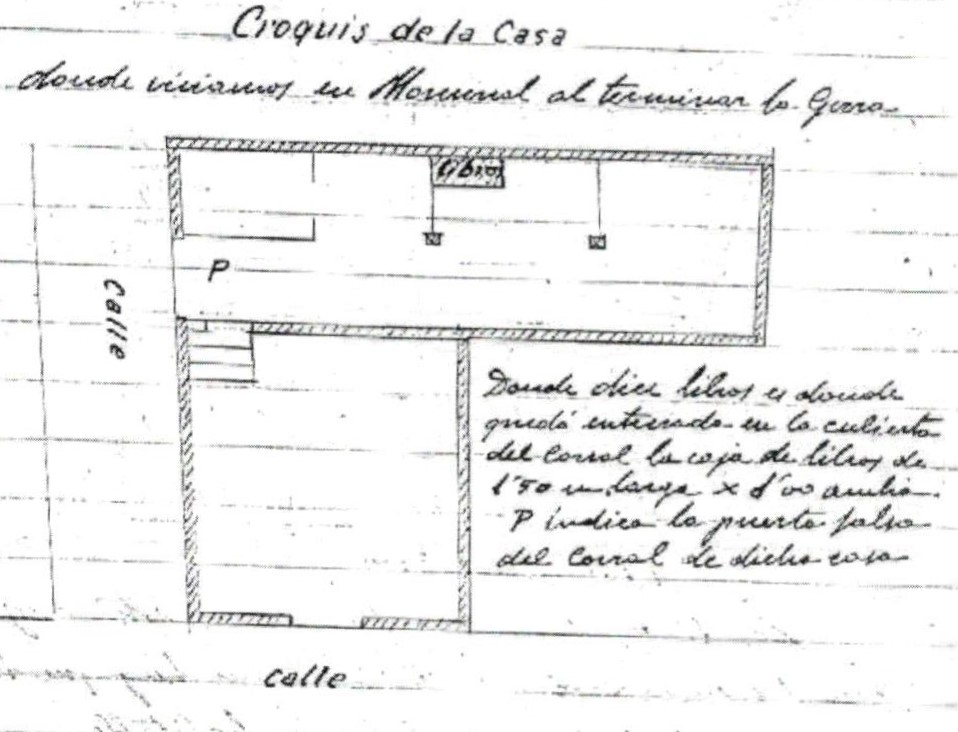 Croquis de la Casa
donde viviamos en Monreal al terminar la Gerra
libros
P
Calle
Donde dice libros es donde
quedó enterrado en la cubierta
del corral la caja de libros de
1'50 m larga x 1'00 ancha.
P indica la puerta falsa
del corral de dicha casa
calle